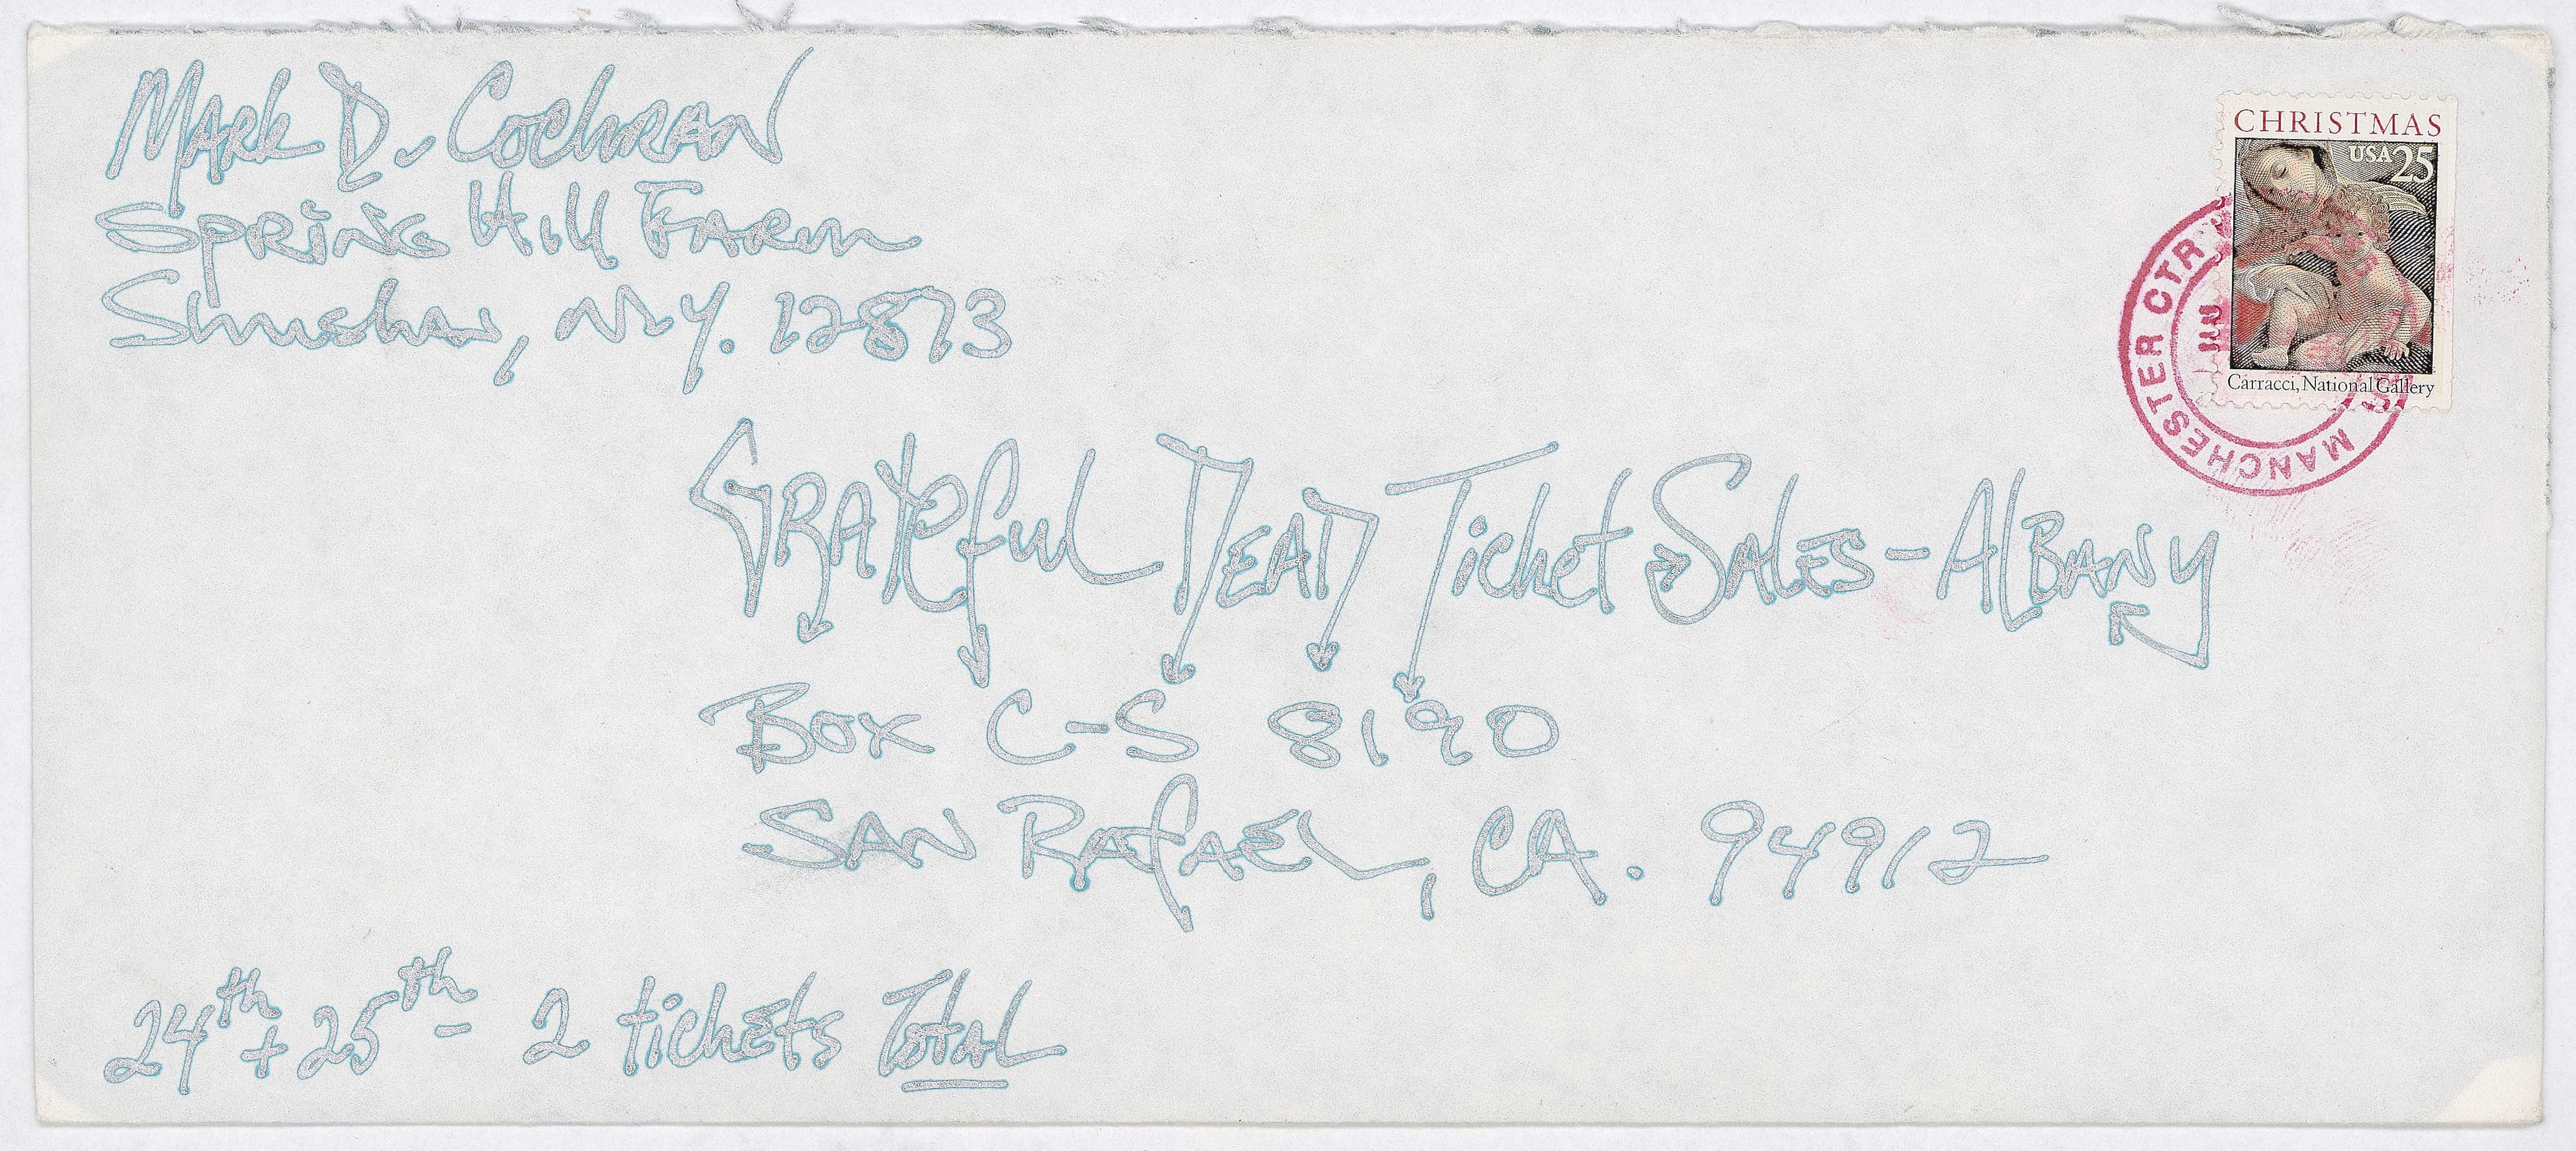 Mark D. Cochran
Spring Hill Farm
Shushan, N.Y. 12873
CHRISTMAS
USA 25
Carracci, National Gallery
MANCHESTER CTR
JAN
Grateful Dead Ticket Sales - Albany
Box C-S 8190
San Rafael, CA. 94912
24th + 25th - 2 tickets Total